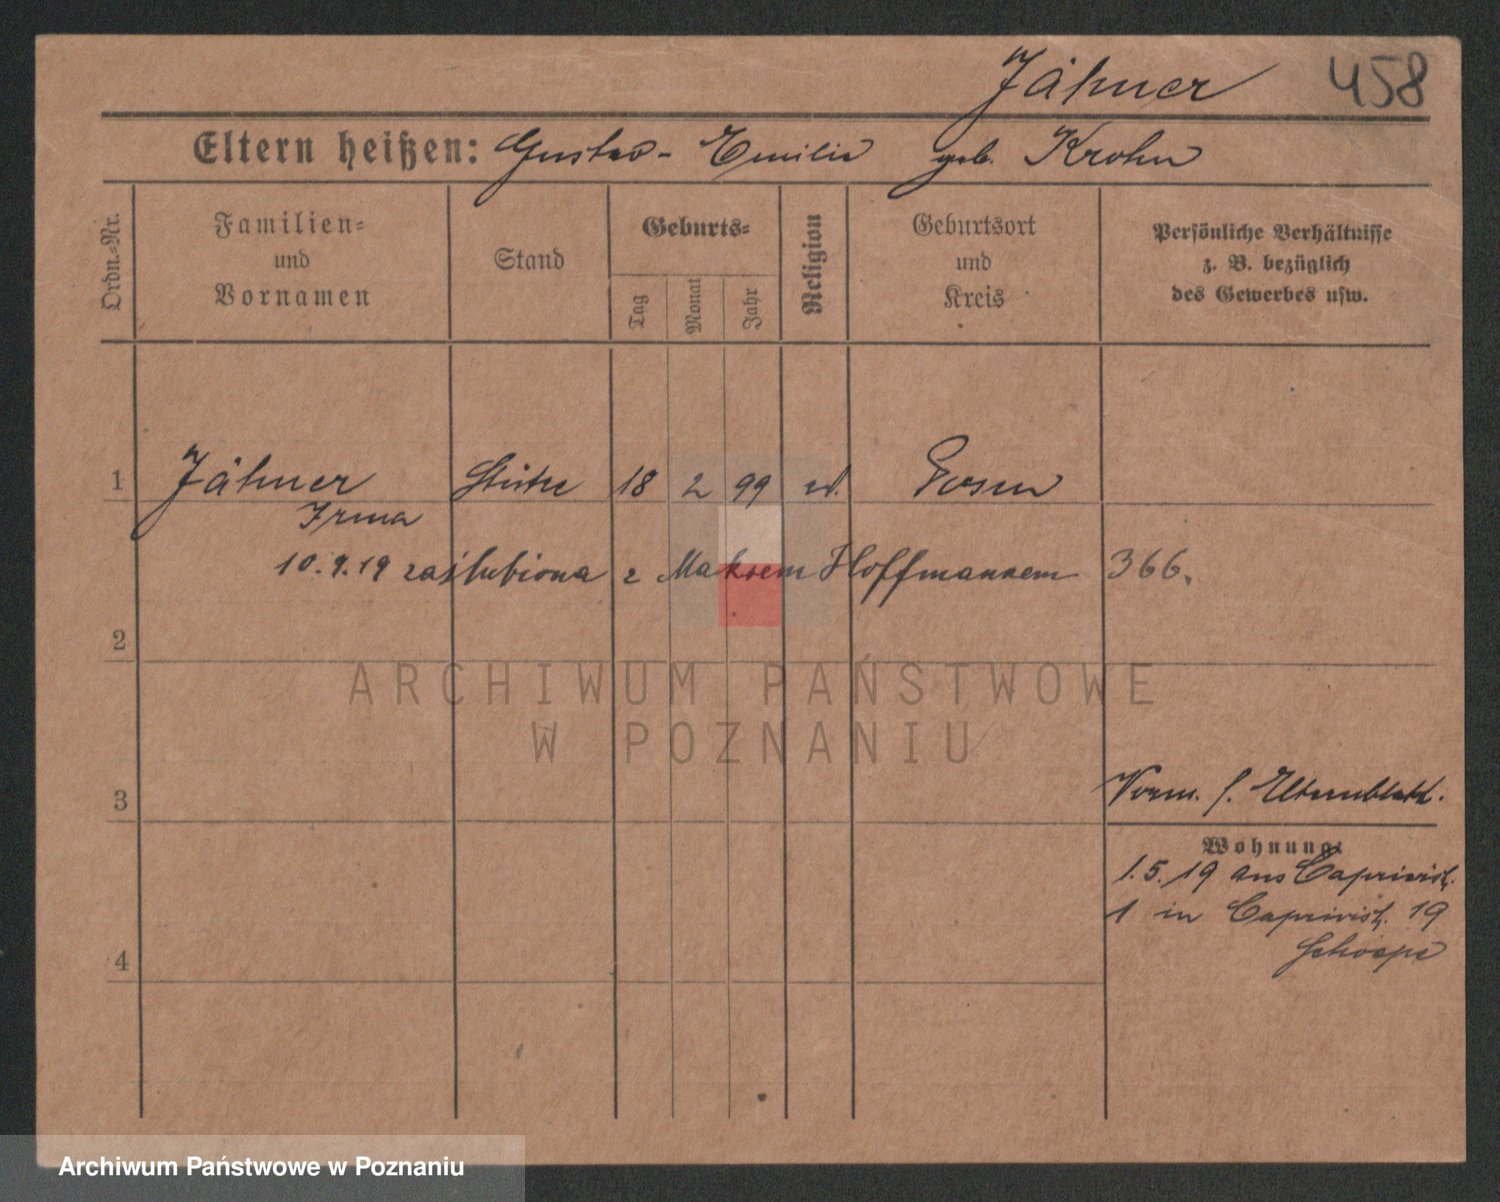 Jähner 458
Eltern heißen: Gustav - Emilie geb. Krohn
Ordn.-Nr.
Familien-
und
Vornamen
Stand
Geburts-
Tag
Monat
Jahr
Religion
Geburtsort
und
Kreis
Persönliche Verhältnisse
z. B. bezüglich
des Gewerbes usw.
1 Jähner Stütze 18 2 99 ev. Posen
Irma
10.9.19 zaślubiona z Maksem Hoffmannem 366.
2
ARCHIWUM PAŃSTWOWE
W POZNANIU
3 Vorm. s. Elternblatt.
Wohnung:
1.5.19 aus Caprivist.
1 in Caprivist. 19
4
Archiwum Państwowe w Poznaniu